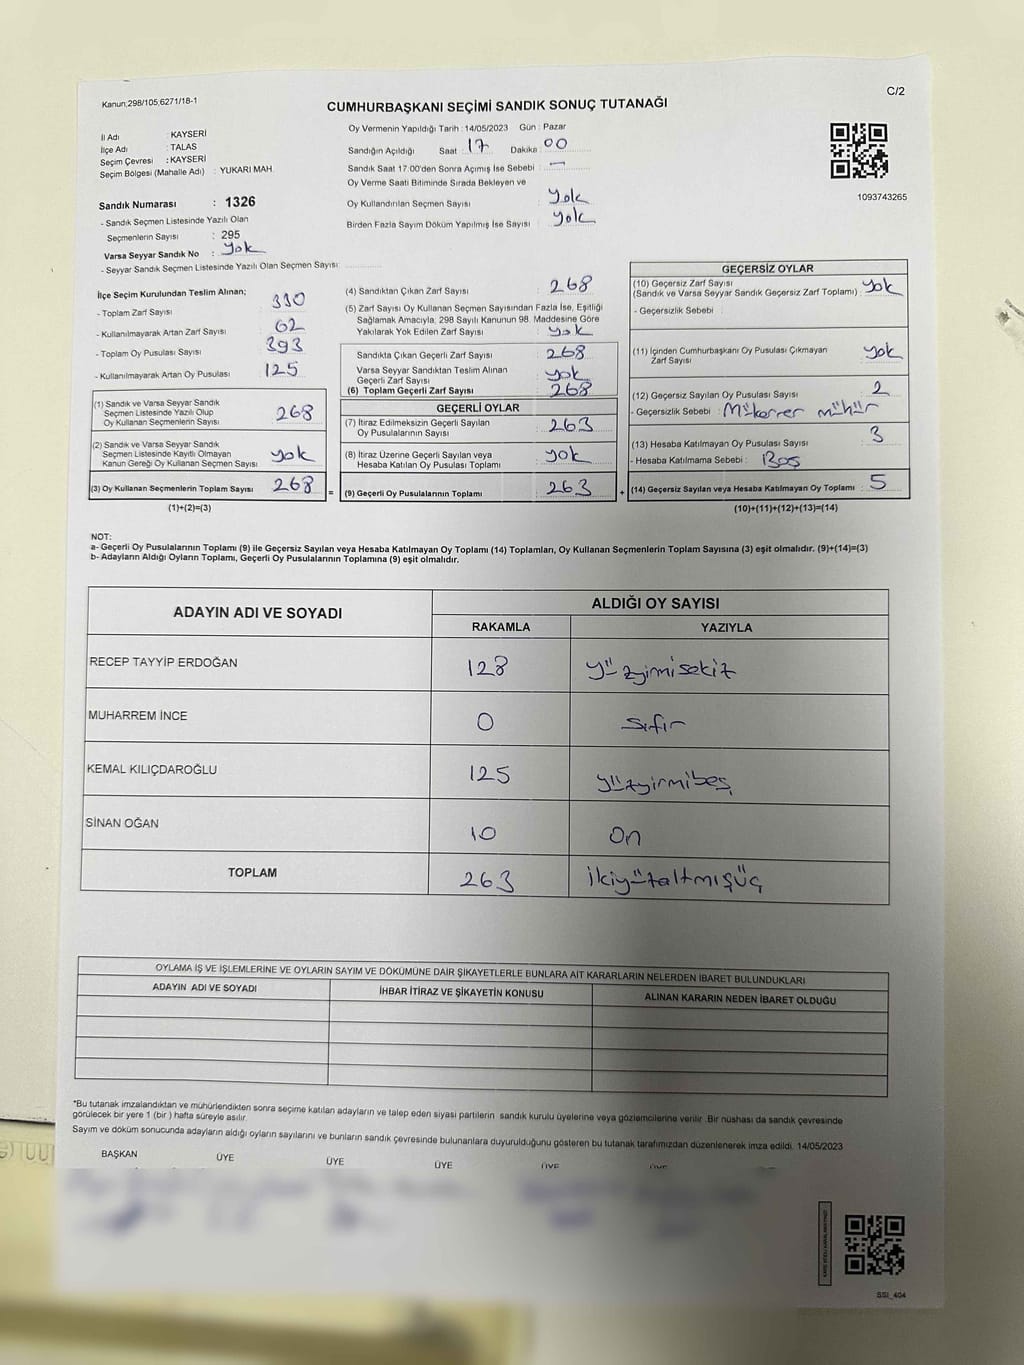 Kanun;298/105;6271/18-1
C/2
CUMHURBAŞKANI SEÇİMİ SANDIK SONUÇ TUTANAĞI
İl Adı : KAYSERİ
İlçe Adı : TALAS
Seçim Çevresi : KAYSERİ
Seçim Bölgesi (Mahalle Adı) : YUKARI MAH.
Sandık Numarası : 1326
- Sandık Seçmen Listesinde Yazılı Olan
Seçmenlerin Sayısı : 295
Varsa Seyyar Sandık No : yok
- Seyyar Sandık Seçmen Listesinde Yazılı Olan Seçmen Sayısı:
Oy Vermenin Yapıldığı Tarih : 14/05/2023 Gün : Pazar
Sandığın Açıldığı Saat : 17 Dakika : 00
Sandık Saat 17:00'den Sonra Açımış İse Sebebi : —
Oy Verme Saati Bitiminde Sırada Bekleyen ve
Oy Kullandırılan Seçmen Sayısı : yok
Birden Fazla Sayım Döküm Yapılmış İse Sayısı : yok
1093743265
İlçe Seçim Kurulundan Teslim Alınan;
- Toplam Zarf Sayısı : 330
- Kullanılmayarak Artan Zarf Sayısı : 62
- Toplam Oy Pusulası Sayısı : 393
- Kullanılmayarak Artan Oy Pusulası : 125
(1) Sandık ve Varsa Seyyar Sandık
Seçmen Listesinde Yazılı Olup
Oy Kullanan Seçmen Sayısı : 268
(2) Sandık ve Varsa Seyyar Sandık
Seçmen Listesinde Kayıtlı Olmayan
Kanun Gereği Oy Kullanan Seçmen Sayısı : yok
(3) Oy Kullanan Seçmenlerin Toplam Sayısı : 268
(1)+(2)=(3)
(4) Sandıktan Çıkan Zarf Sayısı : 268
(5) Zarf Sayısı Oy Kullanan Seçmen Sayısından Fazla İse, Eşitliği
Sağlamak Amacıyla, 298 Sayılı Kanunun 98. Maddesine Göre
Yakılarak Yok Edilen Zarf Sayısı : yok
Sandıkta Çıkan Geçerli Zarf Sayısı : 268
Varsa Seyyar Sandıktan Teslim Alınan
Geçerli Zarf Sayısı : yok
(6) Toplam Geçerli Zarf Sayısı : 268
GEÇERLİ OYLAR
(7) İtiraz Edilmeksizin Geçerli Sayılan
Oy Pusulalarının Sayısı : 263
(8) İtiraz Üzerine Geçerli Sayılan veya
Hesaba Katılan Oy Pusulası Toplamı : yok
= (9) Geçerli Oy Pusulalarının Toplamı : 263
GEÇERSİZ OYLAR
(10) Geçersiz Zarf Sayısı
(Sandık ve Varsa Seyyar Sandık Geçersiz Zarf Toplamı) : yok
- Geçersizlik Sebebi :
(11) İçinden Cumhurbaşkanı Oy Pusulası Çıkmayan
Zarf Sayısı : yok
(12) Geçersiz Sayılan Oy Pusulası Sayısı : 2
- Geçersizlik Sebebi : Mükerrer mühür
(13) Hesaba Katılmayan Oy Pusulası Sayısı : 3
- Hesaba Katılmama Sebebi : Boş
+ (14) Geçersiz Sayılan veya Hesaba Katılmayan Oy Toplamı : 5
(10)+(11)+(12)+(13)=(14)
NOT:
a- Geçerli Oy Pusulalarının Toplamı (9) ile Geçersiz Sayılan veya Hesaba Katılmayan Oy Toplamı (14) Toplamları, Oy Kullanan Seçmenlerin Toplam Sayısına (3) eşit olmalıdır. (9)+(14)=(3)
b- Adayların Aldığı Oyların Toplamı, Geçerli Oy Pusulalarının Toplamına (9) eşit olmalıdır.
ADAYIN ADI VE SOYADI
ALDIĞI OY SAYISI
RAKAMLA YAZIYLA
RECEP TAYYİP ERDOĞAN 128 yüzyimisekiz
MUHARREM İNCE 0 sıfır
KEMAL KILIÇDAROĞLU 125 yüzyirmibeş
SİNAN OĞAN 10 on
TOPLAM 263 ikiyüzaltmışüç
OYLAMA İŞ VE İŞLEMLERİNE VE OYLARIN SAYIM VE DÖKÜMÜNE DAİR ŞİKAYETLERLE BUNLARA AİT KARARLARIN NELERDEN İBARET BULUNDUKLARI
ADAYIN ADI VE SOYADI İHBAR İTİRAZ VE ŞİKAYETİN KONUSU ALINAN KARARIN NEDEN İBARET OLDUĞU
*Bu tutanak imzalandıktan ve mühürlendikten sonra seçime katılan adayların ve talep eden siyasi partilerin sandık kurulu üyelerine veya gözlemcilerine verilir. Bir nüshası da sandık çevresinde
görülecek bir yere 1 (bir ) hafta süreyle asılır.
Sayım ve döküm sonucunda adayların aldığı oyların sayılarını ve bunların sandık çevresinde bulunanlara duyurulduğunu gösteren bu tutanak tarafımızdan düzenlenerek imza edildi. 14/05/2023
BAŞKAN ÜYE ÜYE ÜYE ÜYE ÜYE
SSI_404